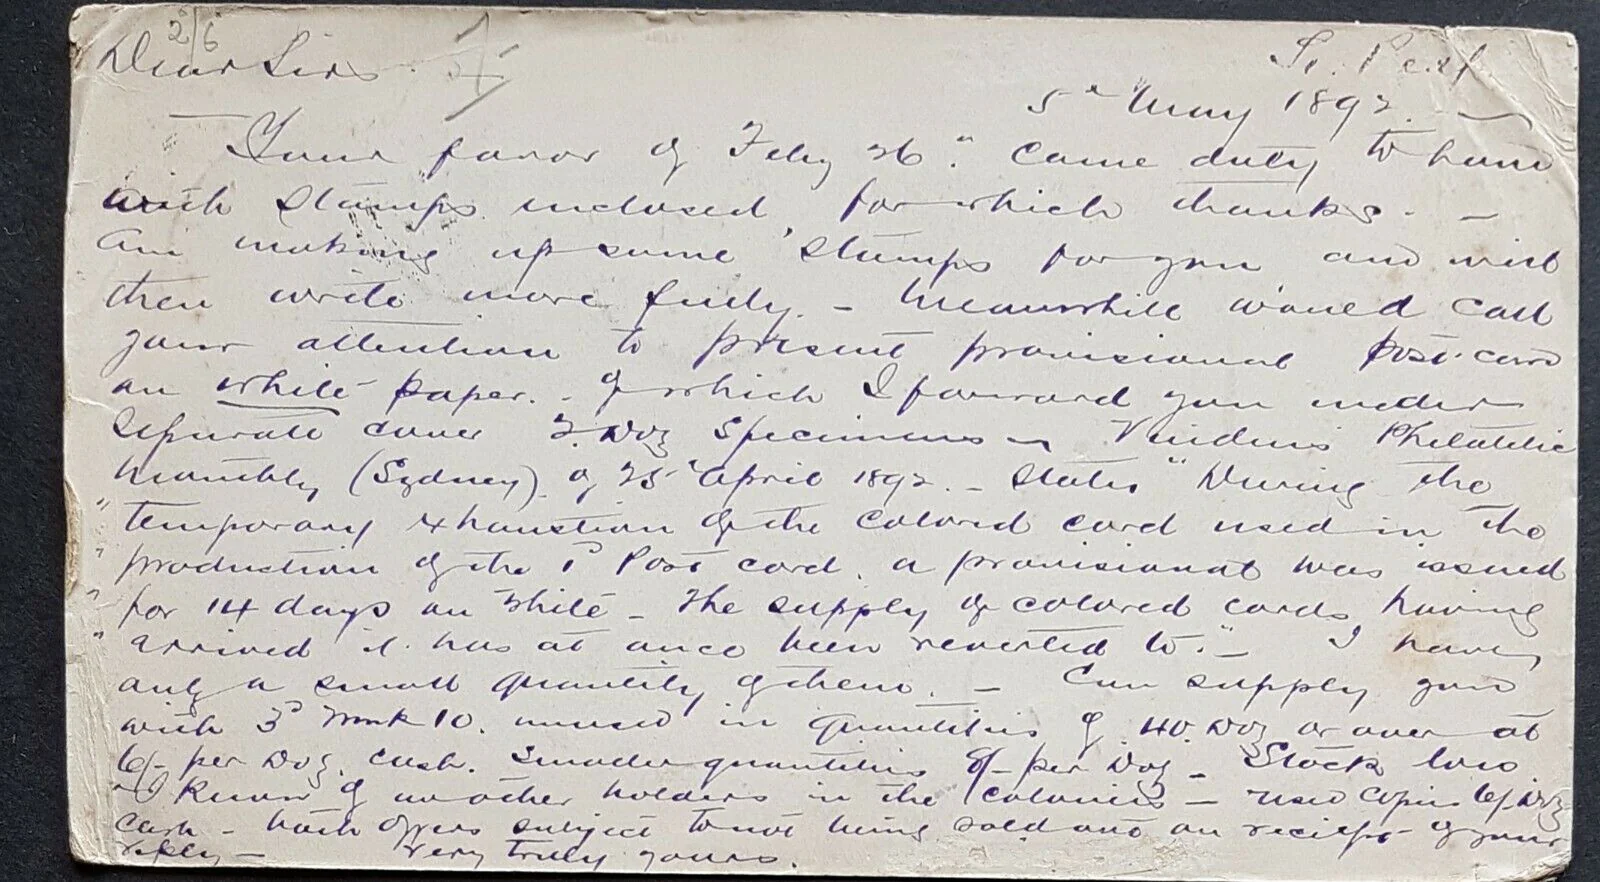 2/6
Dear Sirs
5th May 1892.
Your favor of Feby 26th came duly to hand
with stamps inclosed for which thanks. —
Am making up some stamps for you and will
then write more fully. — Meanwhile would call
your attention to present provisional post-card
on white paper. — of which I forward you under
separate cover 2. Doz specimens — Vindin's Philatelic
Monthly (Sydney) of 25th April 1892. — States "During the
"temporary exhaustion of the colored card used in the
"production of the 1d Post card. a provisional was issued
"for 14 days on white — The supply of colored cards having
"arrived it has at once been reverted to." — I have
only a small quantity of them. — Can supply you
with 3d Mark 10. unused in quantities of 40. Doz or over at
6/- per Doz. cash. Smaller quantities 8/- per Doz — Stock low
I know of no other holders in the colonies — used copies 6/- Doz
cash — both offers subject to not being sold out on receipt of your
reply — very truly yours.